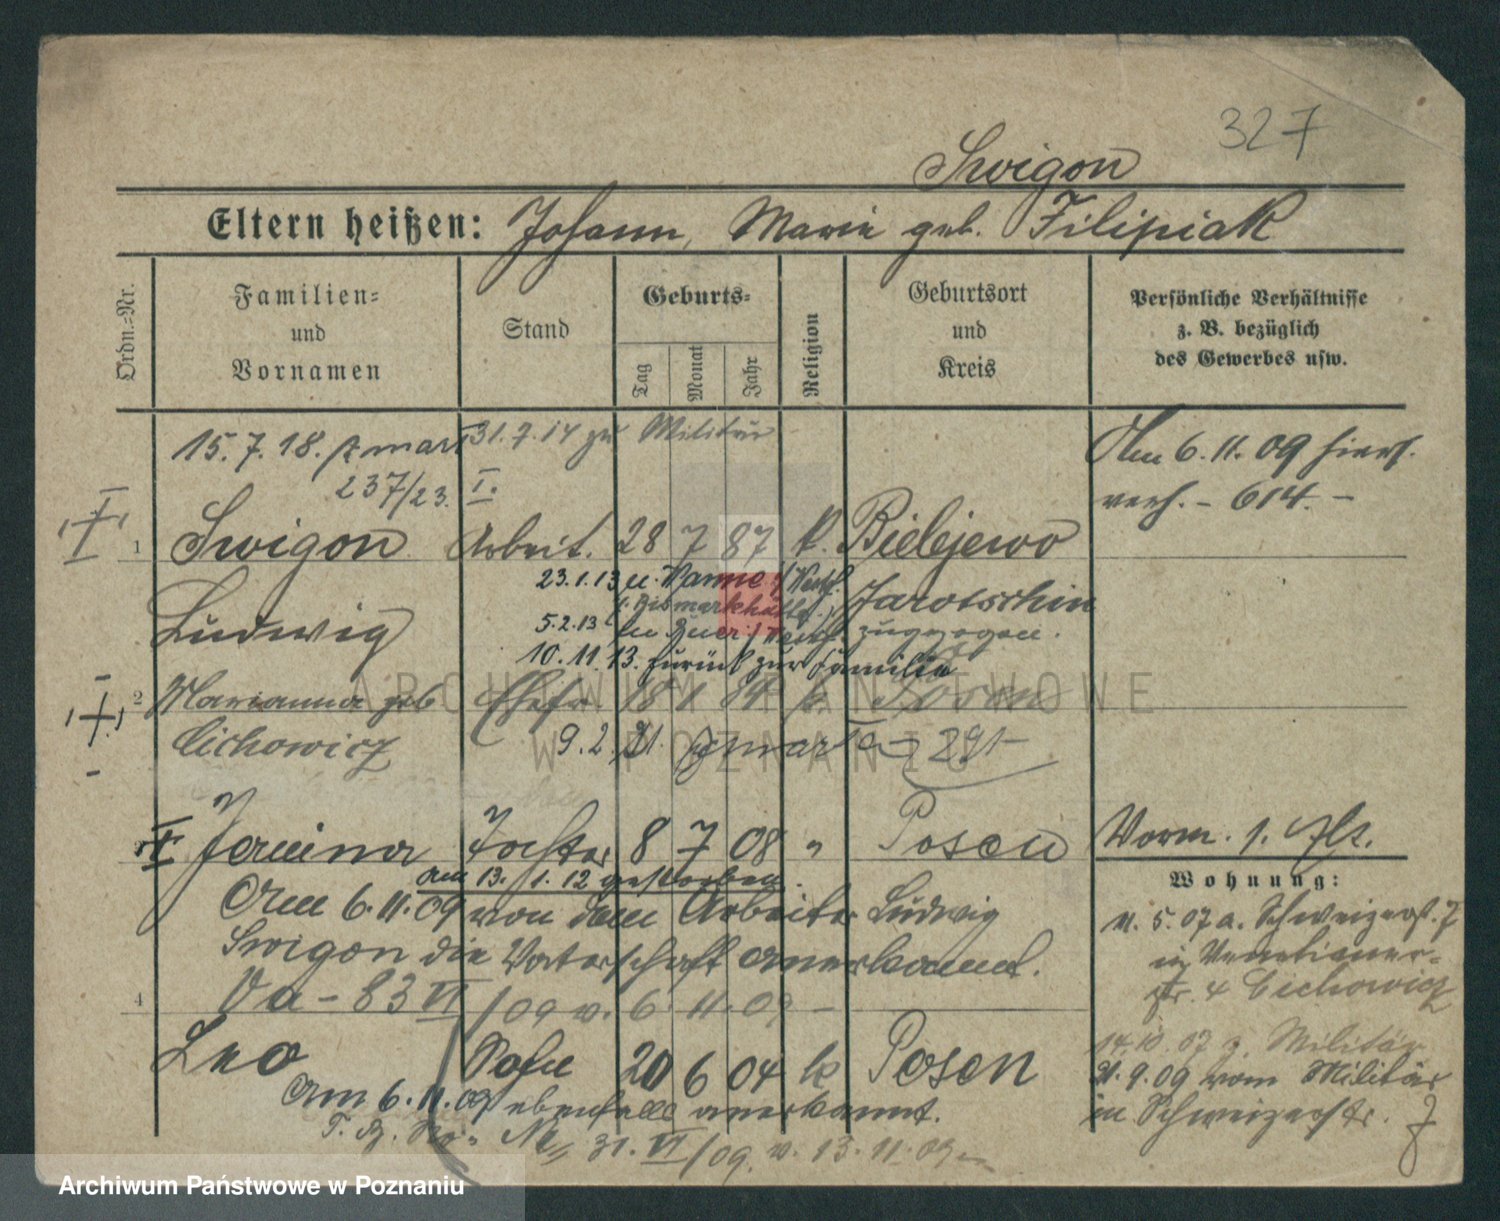 327
Swigon
Eltern heißen: Johann, Marie geb. Filipiak
Ordn.=Nr.
Familien=
und
Vornamen
Stand
Geburts=
Tag
Monat
Jahr
Religion
Geburtsort
und
Kreis
Persönliche Verhältnisse
z. B. bezüglich
des Gewerbes usw.
15.7.18.
31.7.14 zu Militär
237/23. I.
Am 6.11.09 hiers.
verh. - 614. -
1 Swigon Arbeit. 28 7 87 k. Bielejewo
Ludwig Jarotschin
23.1.13 n. Wanne / Westf.
5.2.13
zugezogen.
10.11.13. zurück zur Familie
2 Marianna geb Ehefr 18 1 84 k. Posen
Cichowicz 9.2.21. - 291 -
Janina Tochter 8 7 08 " Posen
Vorm. 1. Abt.
am 13. 1. 12 gestorben.
Wohnung:
Am 6.11.09 von dem Arbeiter Ludwig
Swigon die Vaterschaft anerkannt.
Va - 83 VI /09 v. 6. 11. 09 -
5.07 a. Schweizerst. 7
in Venetianer-
str. 4 Cichowicz
4
Leo Sohn 20 6 04 k Posen
Am 6.11.09 ebenfalls anerkannt.
31. VI /09. v. 13. 11. 09 -
14.10.07 z. Militär
21.9.09 vom Militär
in Schweizerstr. 7
ARCHIWUM PAŃSTWOWE
W POZNANIU
Archiwum Państwowe w Poznaniu